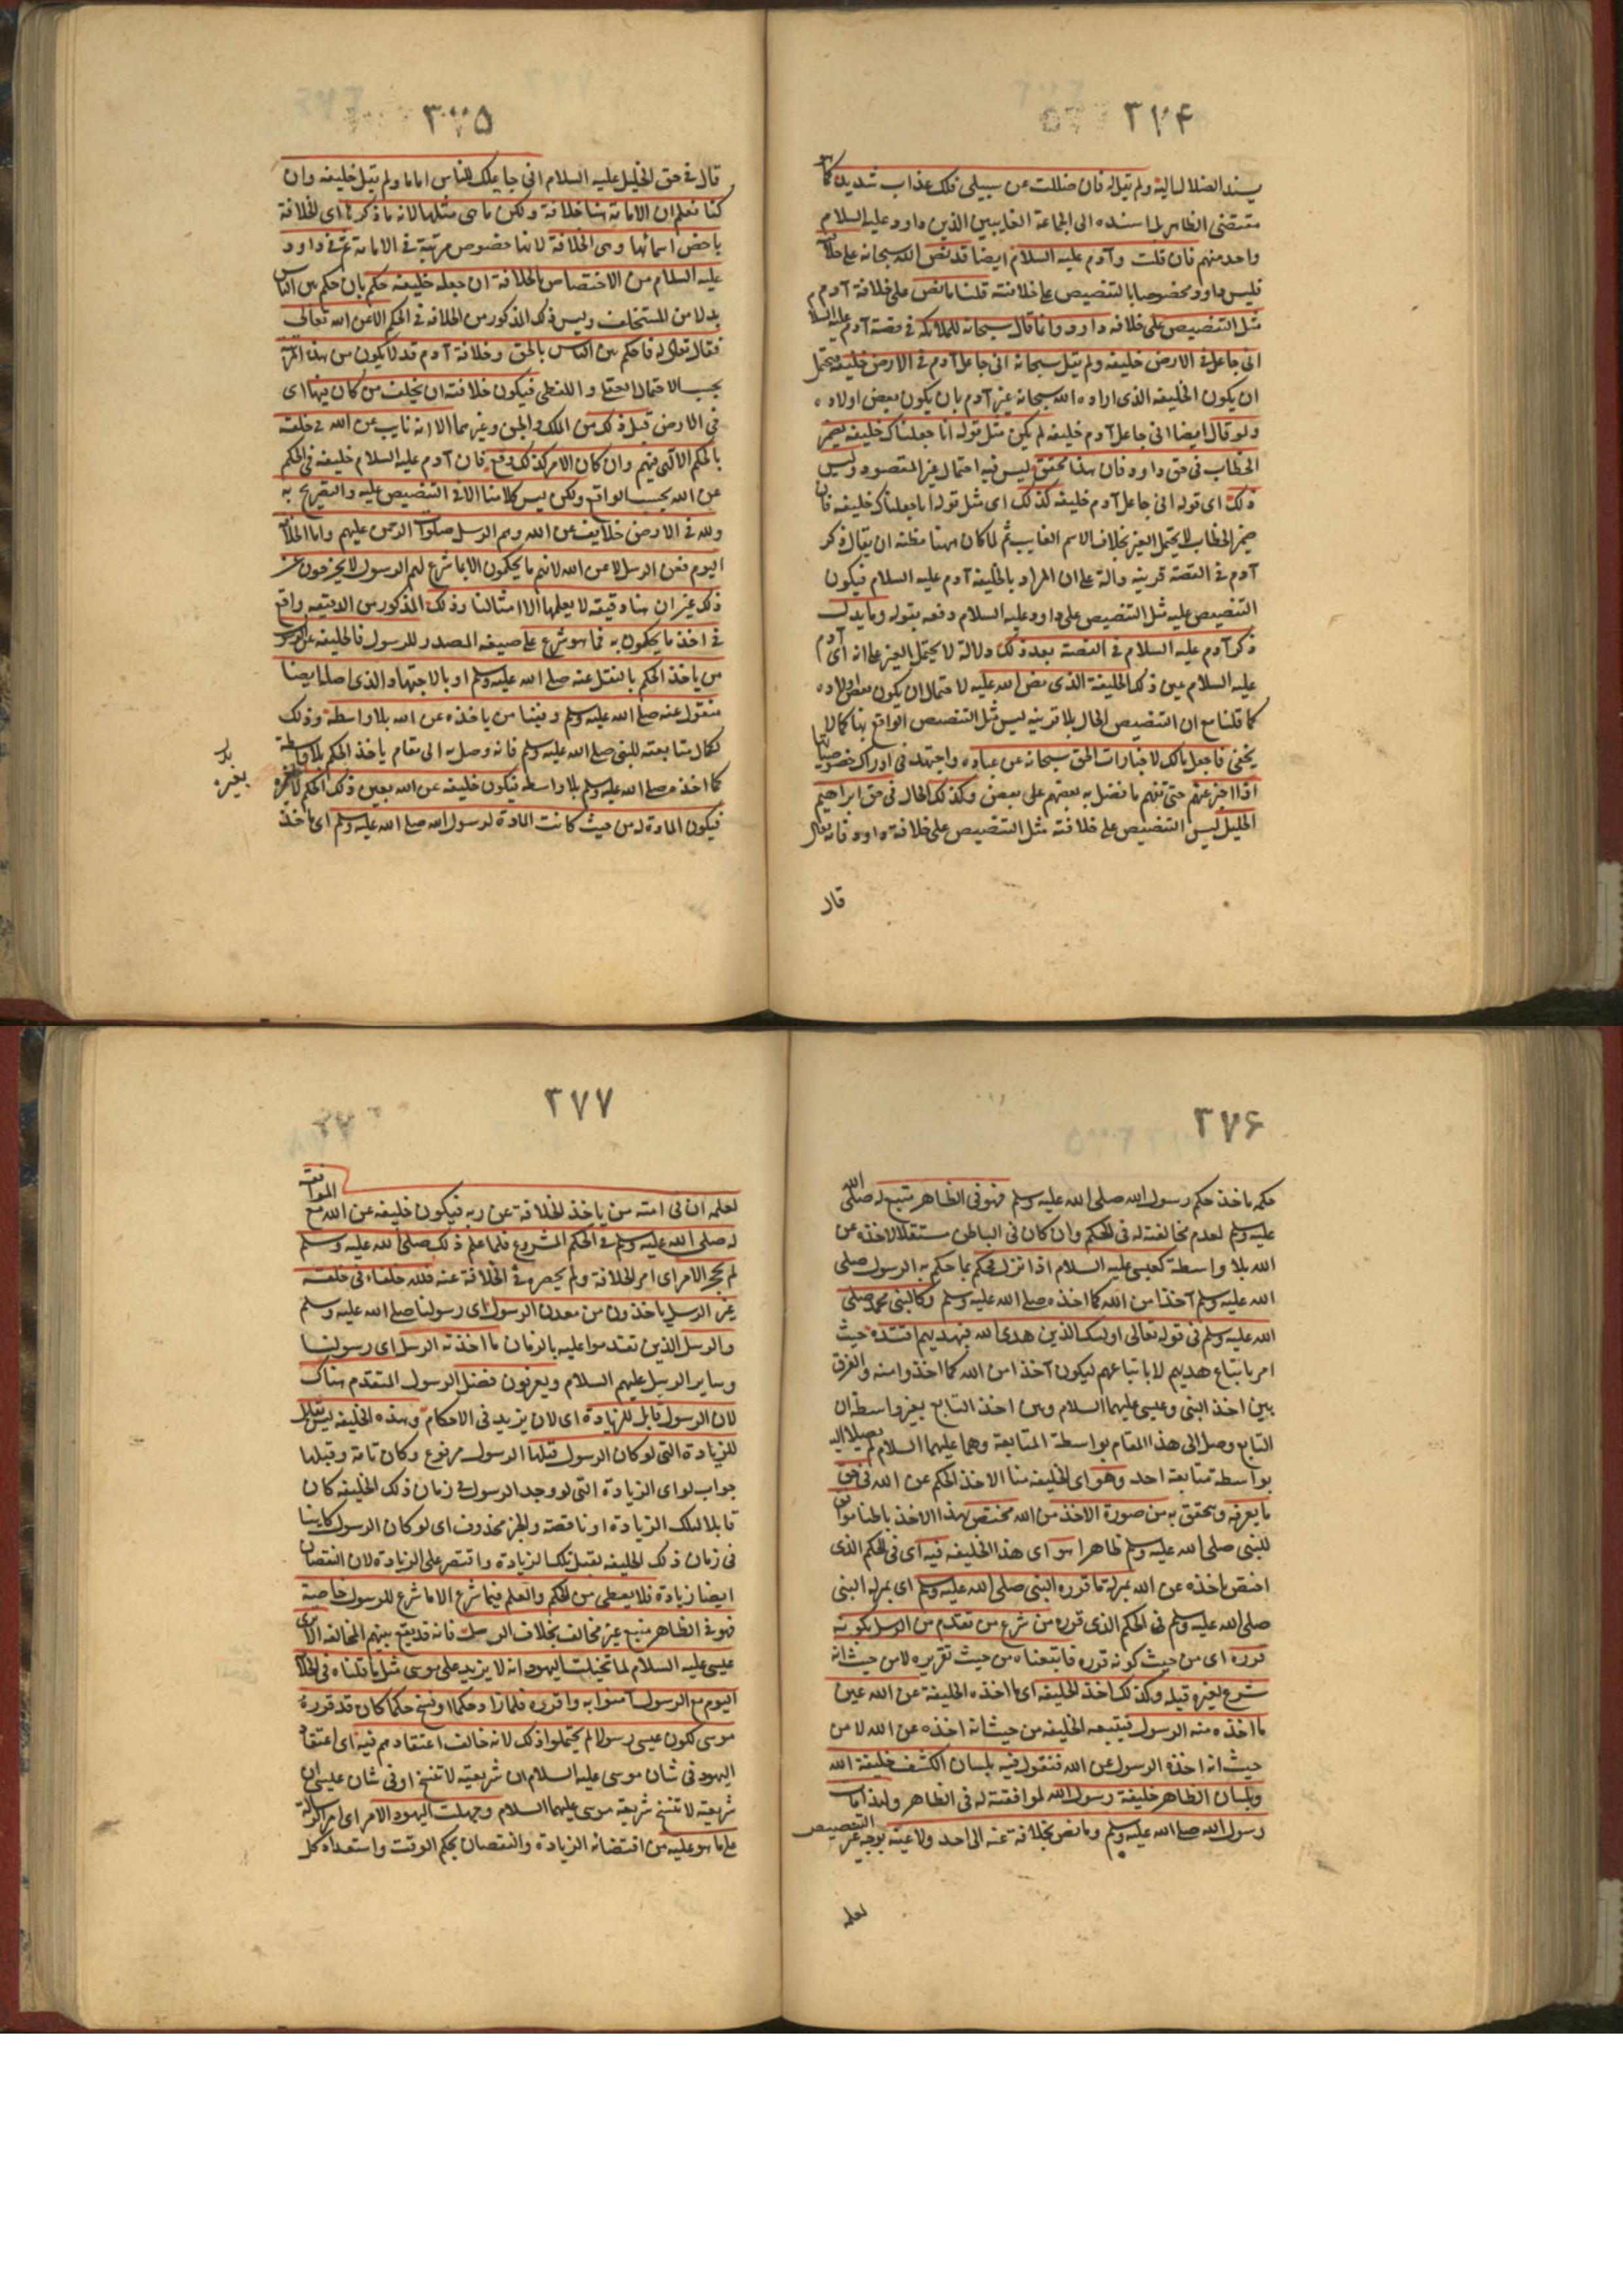 ٣٧٤
يسند الضلال اليه ولم يقل له فان ضللت عن سبيلى فلك عذاب شديد كما هو
مقتضى الظاهر لما اسنده الى الجماعة الغايبين الذين داود عليه السلام
واحد منهم فان قلت وآدم عليه السلام ايضا قد نص الله سبحانه على خلافته
فليس داود مخصوصا بالتنصيص على خلافته قلنا ما نص على خلافة آدم
مثل التنصيص على خلافة داود وانما قال سبحانه للملائكة فى قصة آدم عليه السلام
انى جاعل فى الارض خليفة ولم يقل سبحانه انى جاعل آدم فى الارض خليفة فيحتمل
ان يكون الخليفة الذى اراده الله سبحانه غير آدم بان يكون بعض اولاده
ولو قال ايضا انى جاعل آدم خليفة لم يكن مثل قوله انا جعلناك خليفة بضمير
الخطاب فى حق داود فان هذا محقق ليس فيه احتمال غير المقصود وليس
ذلك اى قوله انى جاعل آدم خليفة كذلك اى مثل قوله انا جعلناك خليفة فان
ضمير الخطاب لا يحتمل الغير بخلاف الاسم الغايب ثم لما كان ههنا مظنة ان يقال ذكر
آدم فى القصة قرينة دالة على ان المراد بالخليفة آدم عليه السلام فيكون
التنصيص عليه مثل التنصيص على داود عليه السلام دفعه بقوله وما يدل
ذكر آدم عليه السلام فى القصة بعد ذلك دلالة لا يحتمل الغير على انه اى آدم
عليه السلام عين ذلك الخليفة الذى نص الله عليه لاحتمال ان يكون بعض اولاده
كما قلنا مع ان التنصيص الحال بلا قرينة ليس مثل التنصيص الواقع بها كما لا
يخفى فاجعل بالك لاخبارات الحق سبحانه عن عباده واجتهد فى ادراك خصوصياتها
اذا اخبر عنهم حتى تفهم ما فضل به بعضهم على بعض وكذلك الحال فى حق ابراهيم
الخليل ليس التنصيص على خلافته مثل التنصيص على خلافة داود فانه تعالى
قال
٣٧٥
قال فى حق الخليل عليه السلام انى جاعلك للناس اماما ولم يقل خليفة وان
كنا نعلم ان الامامة هنا خلافة ولكن ما هى مثلها لانه ما ذكرها اى الخلافة
باخص اسمائها وهى الخلافة لانها خصوص مرتبة فى الامامة ثم فى داود
عليه السلام من الاختصاص بالخلافة ان جعله خليفة حكم بان حكم بين الناس
بدلا من المستخلف وليس ذلك المذكور من الخلافة فى الحكم الا عن الله تعالى
فقال تعالى له فاحكم بين الناس بالحق وخلافة آدم قد لا يكون من هذه المرتبة
بحسب الاحتمال العقلى واللفظى فيكون خلافته ان يخلف من كان فيها اى
فى الارض قبل ذلك من الملك والجن وغيرهما لا انه نايب عن الله فى خلقه
بالحكم الالهى فيهم وان كان الامر كذلك وقع فان آدم عليه السلام خليفة فى الحكم
عن الله بحسب الواقع ولكن ليس كلامنا الا فى التنصيص عليه والتصريح به
ولله فى الارض خلايف عن الله وهم الرسل صلوات الرحمن عليهم واما الخلافة
اليوم فعن الرسل لا عن الله لانهم ما يحكمون الا بما شرع لهم الرسول لا يخرجون عن
ذلك غير ان هنا دقيقة لا يعلمها الا امثالنا وذلك المذكور من الدقيقة واقع
فى اخذ ما يحكمون به مما هو شرع على صيغة المصدر للرسول فالخليفة عن الرسول
من ياخذ الحكم بالنقل عنه صلى الله عليه وسلم او بالاجتهاد الذى اصله ايضا
منقول عنه صلى الله عليه وسلم وفينا من ياخذه عن الله بلا واسطة وذلك
لكمال متابعته للنبى صلى الله عليه وسلم فانه وصل به الى مقام ياخذ الحكم بلا واسطة
كما اخذه صلى الله عليه وسلم بلا واسطة فيكون خليفة عن الله بعين ذلك الحكم لا بغيره
فيكون المادة له من حيث كانت المادة لرسول الله صلى الله عليه وسلم اى ماخذ
بغيره
٣٧٦
حكمه ماخذ حكم رسول الله صلى الله عليه وسلم فهو فى الظاهر متبع له صلى الله
عليه وسلم لعدم مخالفته له فى الحكم وان كان فى الباطن مستقلا لاخذه عن
الله بلا واسطة كعيسى عليه السلام اذا نزل فحكم بما حكم به الرسول صلى
الله عليه وسلم آخذا من الله كما اخذه صلى الله عليه وسلم وكالنبى محمد صلى
الله عليه وسلم فى قوله تعالى اولئك الذين هدى الله فبهديهم اقتده حيث
امر باتباع هديهم لا باتباعهم ليكون آخذا من الله كما اخذوا منه والفرق
بين اخذ النبى وعيسى عليهما السلام وبين اخذ التابع بغير واسطة ان
التابع وصل الى هذا المقام بواسطة المتابعة وهما عليهما السلام لم يصلا اليه
بواسطة متابعة احد وهو اى الخليفة منا الاخذ الحكم عن الله فى حق
ما يعرفه ويتحقق به من صورة الاخذ من الله مختص بهذا الاخذ باطنا موافق
للنبى صلى الله عليه وسلم ظاهرا هو اى هذا الخليفة فيه اى فى الحكم الذى
اختص باخذه عن الله بمنزلة ما قرره النبى صلى الله عليه وسلم اى بمنزلة النبى
صلى الله عليه وسلم فى الحكم الذى قرره من شرع من تقدم من الرسل بكونه
قرره اى من حيث كونه قرره فاتبعناه من حيث تقريره لا من حيث انه
شرع لغيره قبله وكذلك اخذ الخليفة اى ما اخذه الخليفة عن الله عين
ما اخذه منه الرسول فيتبعه الخليفة من حيث انه اخذه عن الله لا من
حيث انه اخذه الرسول عن الله فنقول فيه بلسان الكشف خليفة الله
وبلسان الظاهر خليفة رسول الله لموافقته له فى الظاهر ولهذا مات
رسول الله صلى الله عليه وسلم وما نص بخلافة عنه الى احد ولا عينه بوجه غير التنصيص
لعلمه
٣٧٧
لعلمه ان فى امته من ياخذ الخلافة عن ربه فيكون خليفة عن الله مع الموافقة
له صلى الله عليه وسلم فى الحكم المشروع فلما علم ذلك صلى الله عليه وسلم
لم يحجر الامر اى امر الخلافة ولم يحصره فى الخلافة عنه فلله خلفاء فى خلقه
غير الرسل ياخذون من معدن الرسول اى رسولنا صلى الله عليه وسلم
والرسل الذين تقدموا عليه بالزمان ما اخذته الرسل اى رسولنا
وساير الرسل عليهم السلام ويعرفون فضل الرسول المتقدم هناك
لان الرسول قابل للزيادة اى لان يزيد فى الاحكام وهذه الخليفة ليس بقابل
للزيادة التى لو كان الرسول قبلها الرسول مرفوع وكان تامة وقبلها
جواب لو اى الزيادة التى لو وجد الرسول فى زمان ذلك الخليفة كان
قابلا لتلك الزيادة او ناقصة والخبر محذوف اى لو كان الرسول كاينا
فى زمان ذلك الخليفة لقبل تلك الزيادة واقتصر على الزيادة لان النقصان
ايضا زيادة فلا يعطى من الحكم والعلم فيما شرع الا ما شرع للرسول خاصة
فهو فى الظاهر متبع غير مخالف بخلاف الرسل فانه قد يقع بينهم المخالفة الا ترى
عيسى عليه السلام لما تخيلت اليهود انه لا يزيد على موسى مثل ما قلناه فى الخلافة
اليوم مع الرسول آمنوا به واقروه فلما زاد حكما او نسخ حكما كان قد قرره
موسى لكون عيسى رسولا لم يحتملوا ذلك لانه خالف اعتقادهم فيه اى اعتقاد
اليهود فى شان موسى عليه السلام ان شريعته لا تنسخ او فى شان عيسى ان
شريعته لا تنسخ شريعة موسى عليهما السلام وجهلت اليهود الامر اى امر الرسالة
على ما هو عليه من اقتضائه الزيادة والنقصان بحكم الوقت واستعداد كل